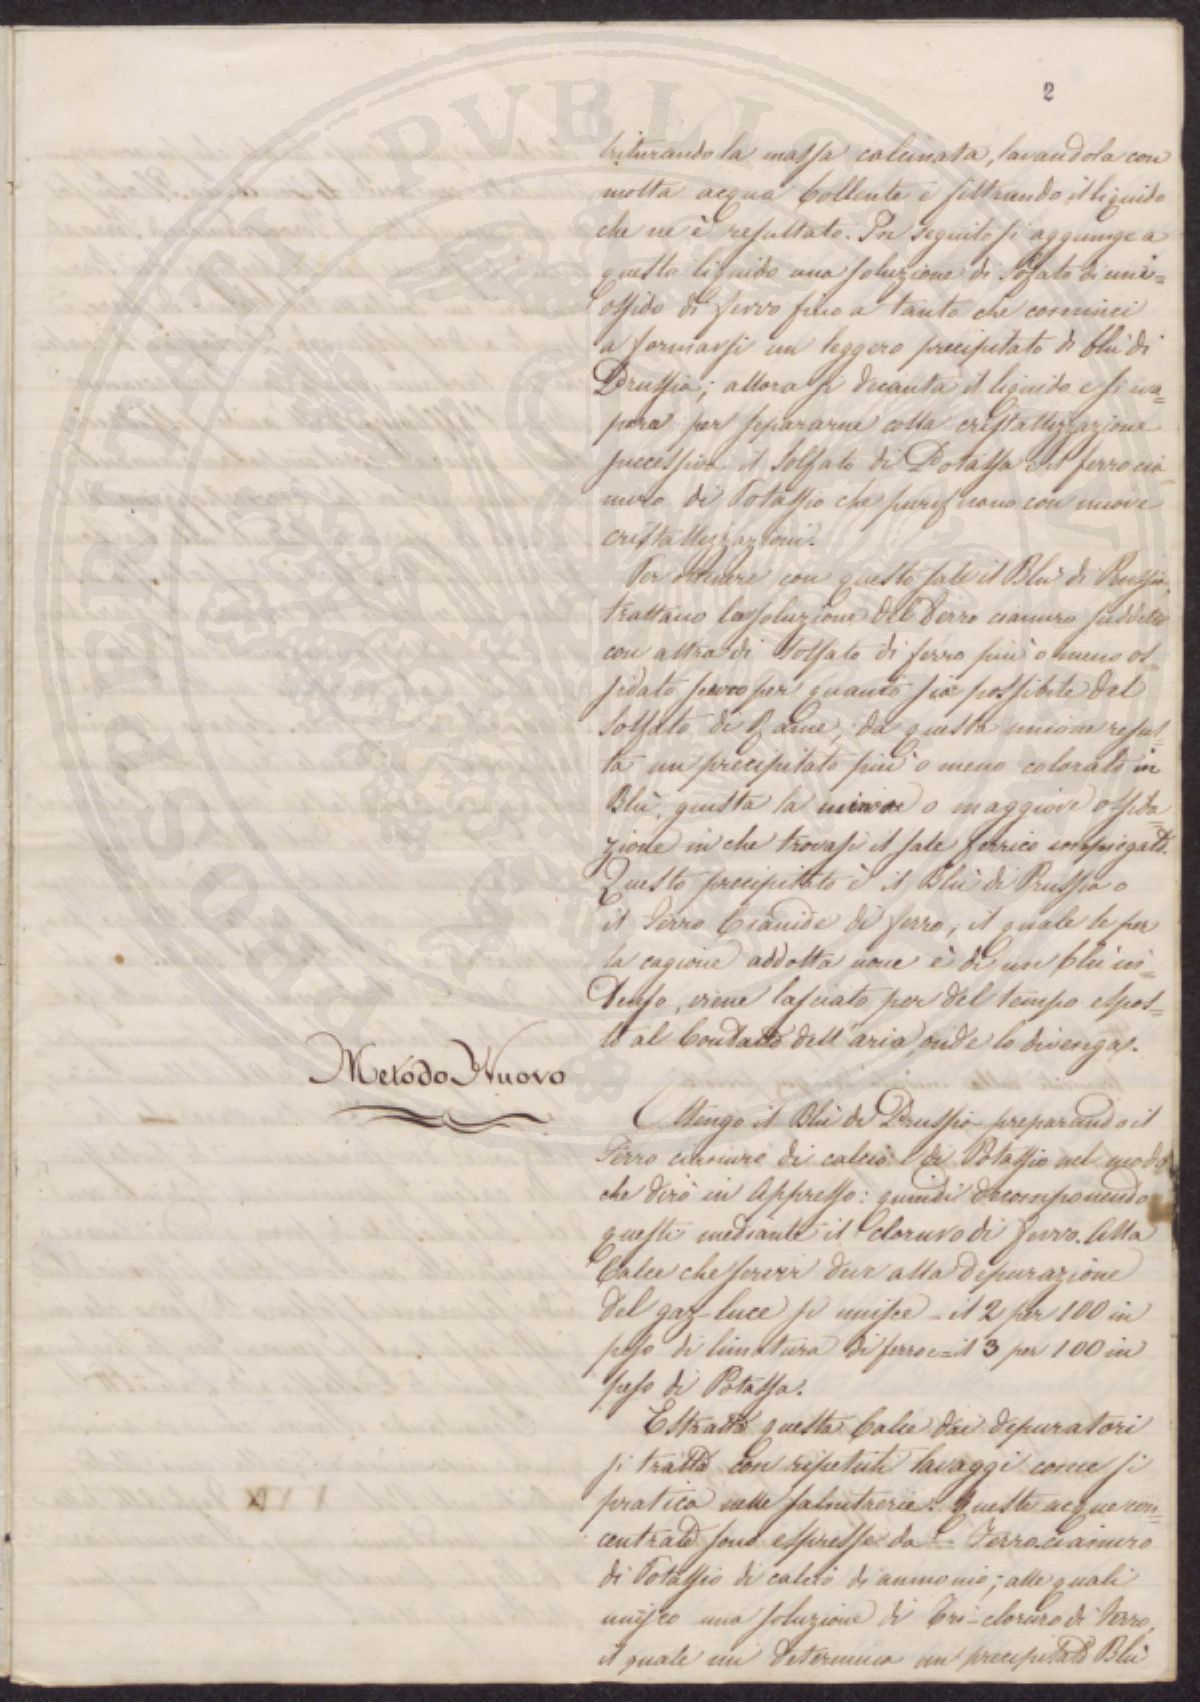 2
triturando la massa calcinata, lavandola con
molta acqua bollente e filtrando il liquido
che ne è resultato. In seguito si aggiunge a
questo liquido una soluzione di Solfato di
ossido di ferro fino a tanto che cominci
a formarsi un leggero precipitato di blù di
Prussia; allora si decanta il liquido e si eva=
pora per separarne colla cristallizzazione
successiva il Solfato di Potassa e il ferro cia
nuro di Potassio che purificano con nuove
cristallizzazioni.
Per ottenere con questo sale il Blù di Prussia,
trattano la soluzione del Ferro cianuro suddetto
con altra di Solfato di ferro più o meno os=
sidato per quanto sia possibile del
Solfato di Rame; da questa unione resul=
ta un precipitato più o meno colorato in
Blù, giusta la minore o maggiore ossida=
zione in che trovasi il sale ferrico impiegato.
Questo precipitato è il Blù di Prussia o
il Ferro Cianide di ferro, il quale se per
la cagione addotta none è di un blù in=
tenso, viene lasciato per del tempo espos=
to al Contatto dell'aria onde lo divenga.
Metodo Nuovo
Ottengo il Blù di Prussia preparando il
Ferro cianuro di calcio e di Potassio nel modo
che dirò in appresso: quindi decomponendo
questi mediante il cloruro di ferro. Alla
Calce che servir deve alla depurazione
del gaz-luce si unisce = il 2 per 100 in
peso di limatura di ferro e = il 3 per 100 in
peso di Potassa.
Estratta questa Calce dai depuratori
si tratta con ripetuti lavaggi come si
pratica nelle salnitrerie. Queste acque con=
centrate sono espresse da = Ferrocianuro
di Potassio di calcio di ammonio; alle quali
unisco una soluzione di Tri-cloruro di ferro,
il quale mi determina un precipitato Blù
PROSPERITATI PVBLIC